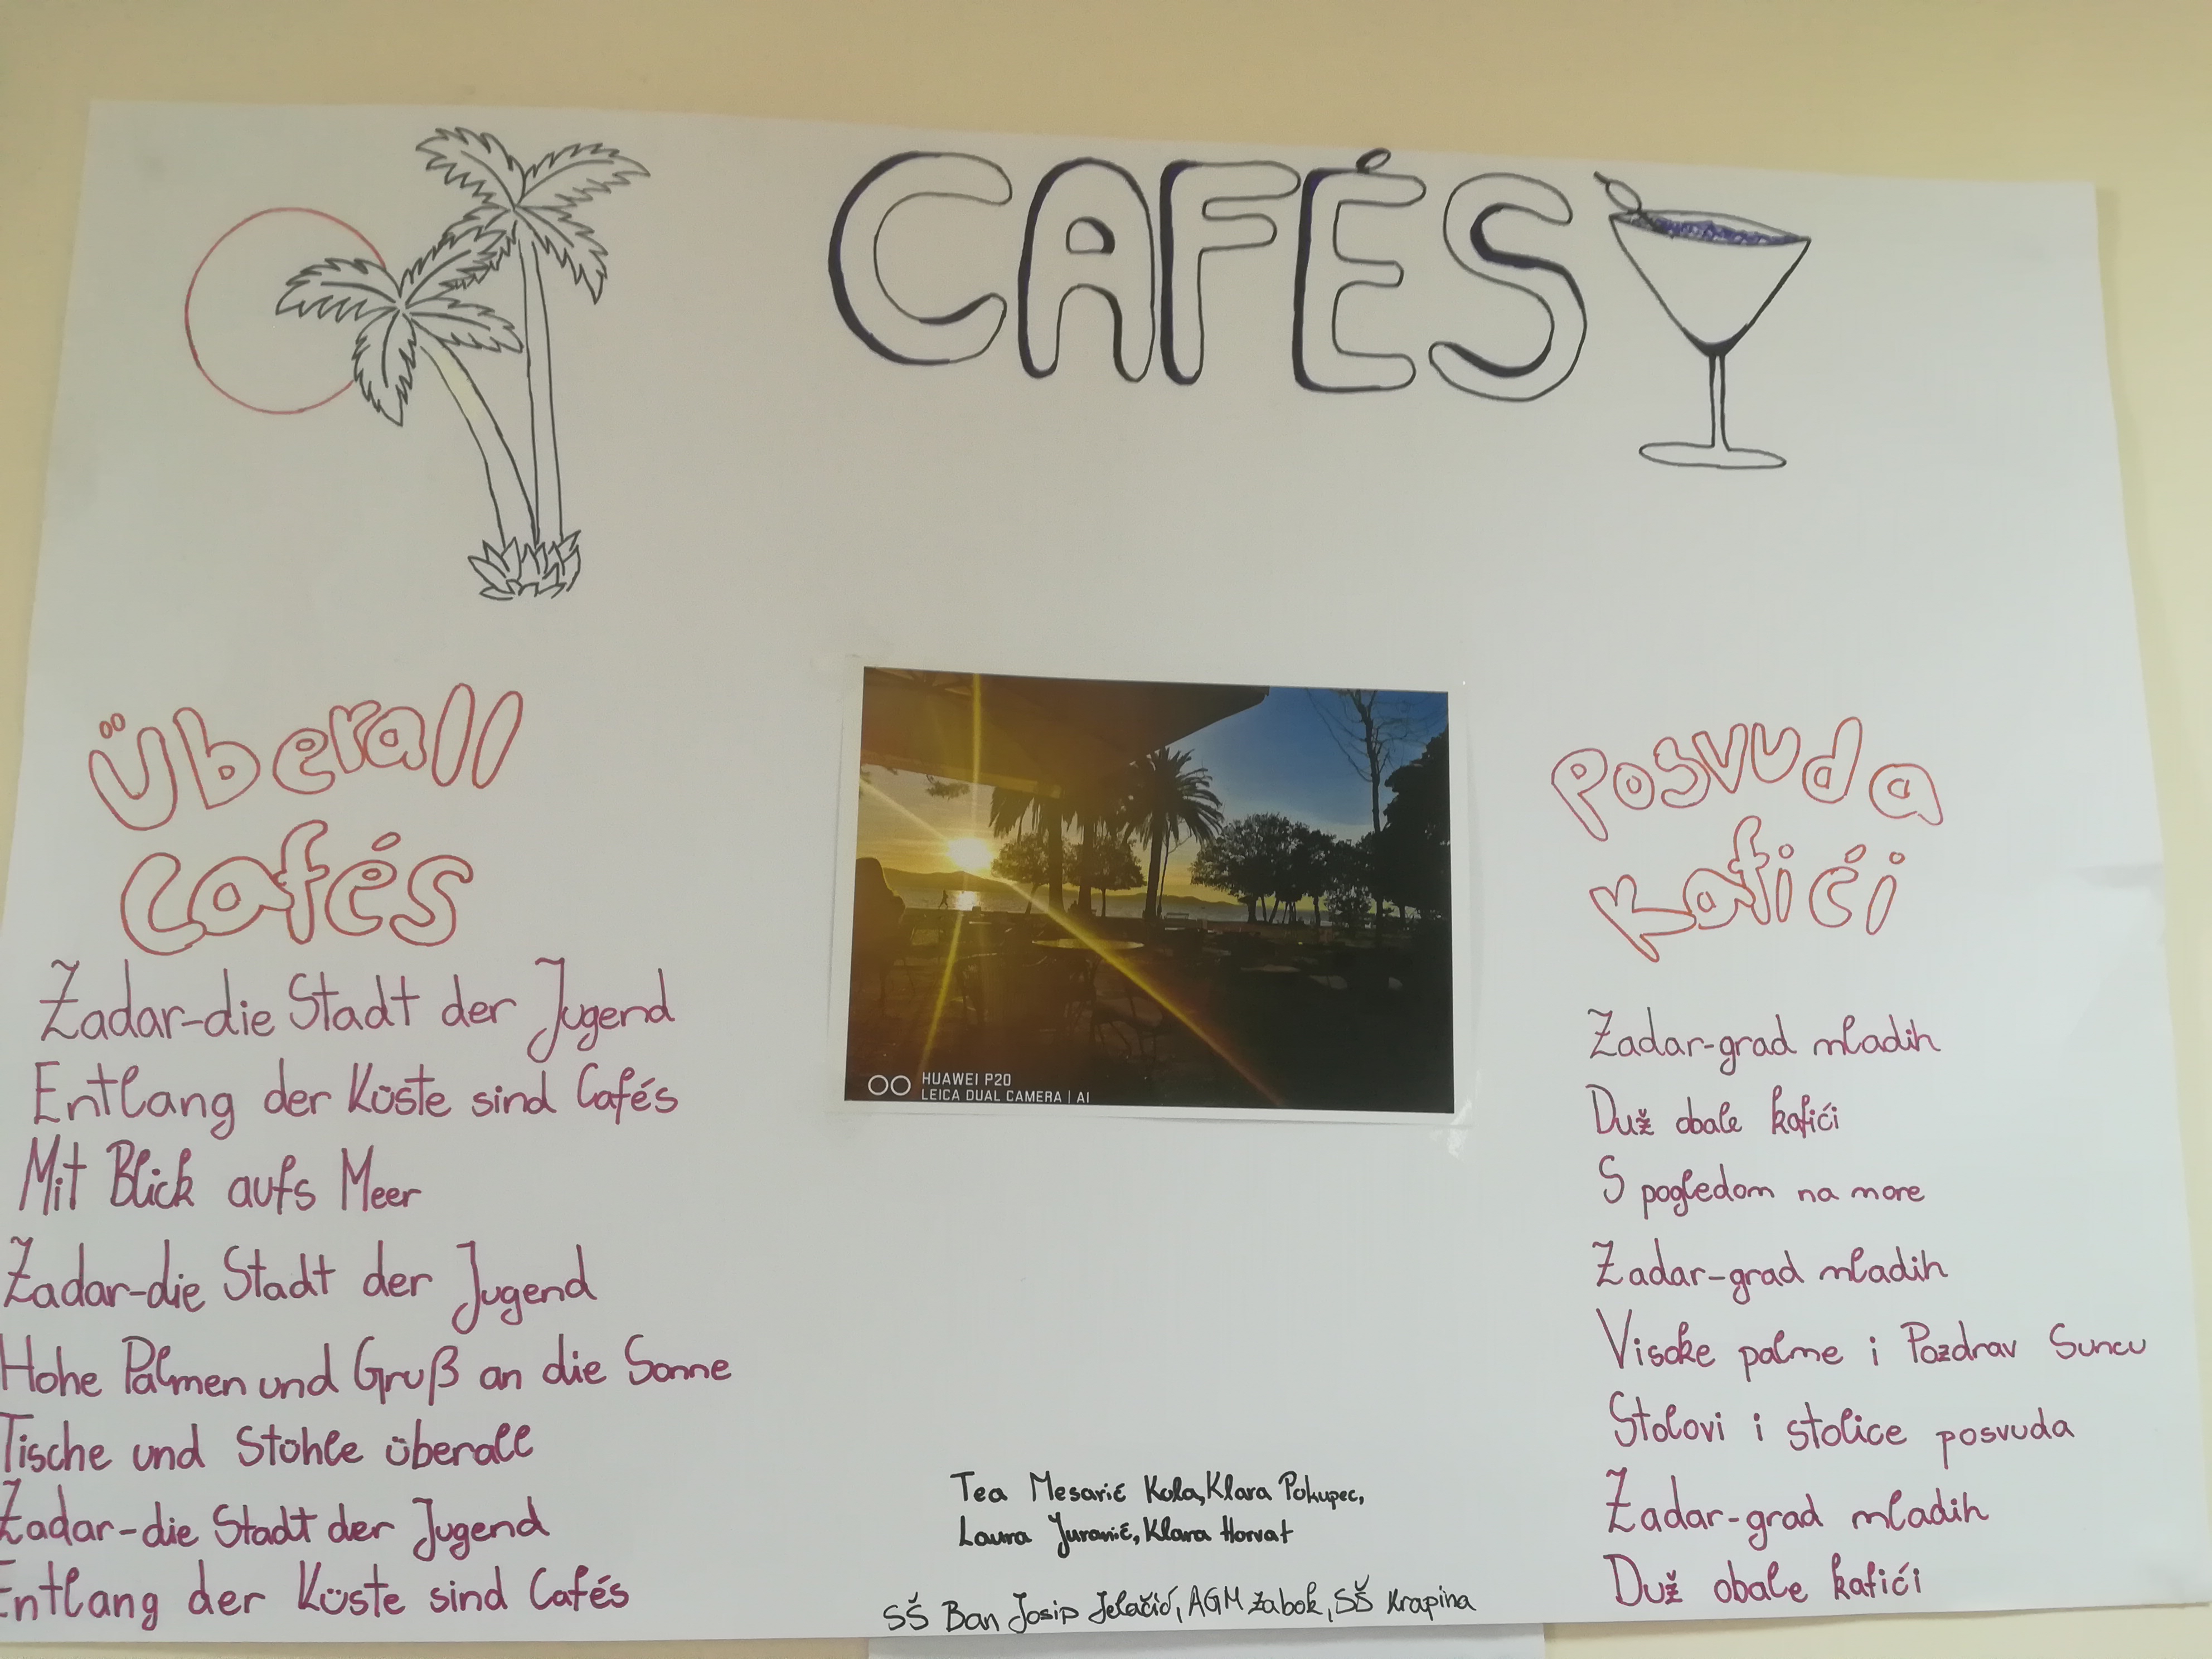 CAFÉS
Überall
Cafés
Zadar-die Stadt der Jugend
Entlang der Küste sind Cafés
Mit Blick aufs Meer
Zadar-die Stadt der Jugend
Hohe Palmen und Gruß an die Sonne
Tische und Stühle überall
Zadar-die Stadt der Jugend
Entlang der Küste sind Cafés
HUAWEI P20
LEICA DUAL CAMERA | AI
Tea Mesarić Kola, Klara Pokupec,
Laura Juranić, Klara Horvat
SŠ Ban Josip Jelačić, AGM Zabok, SŠ Krapina
Posvuda
Kafići
Zadar-grad mladih
Duž obale kafići
S pogledom na more
Zadar-grad mladih
Visoke palme i Pozdrav Suncu
Stolovi i stolice posvuda
Zadar-grad mladih
Duž obale kafići